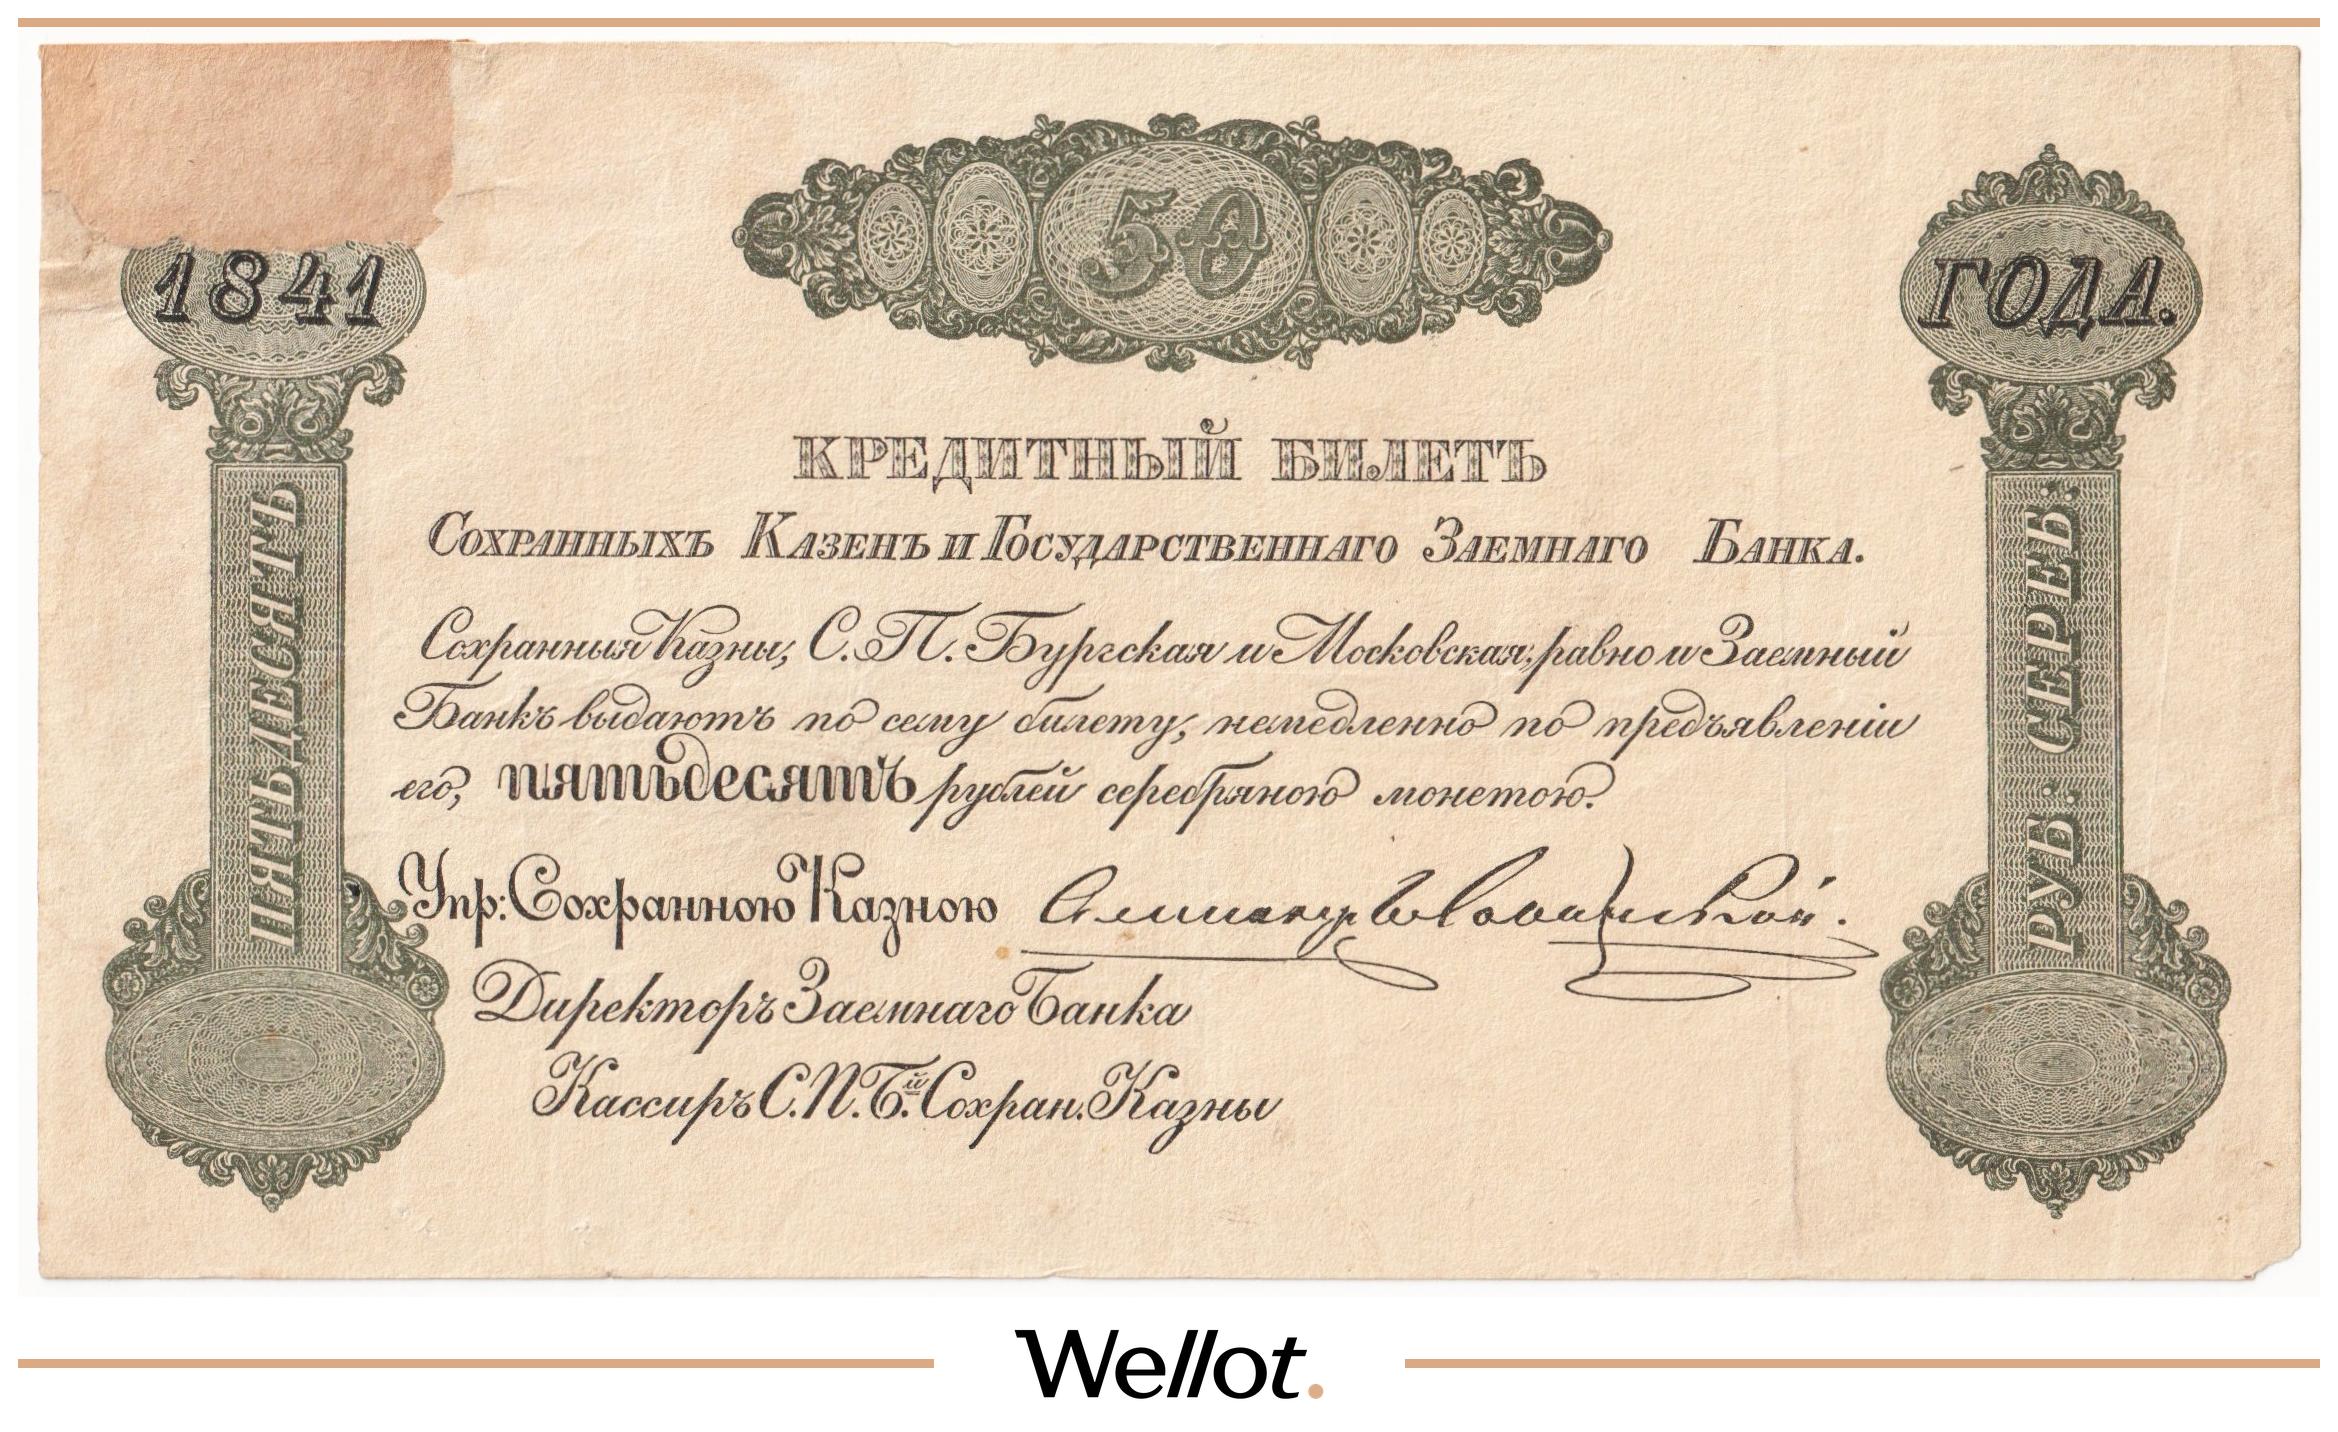 50
1841
ГОДА.
КРЕДИТНЫЙ БИЛЕТЪ
СОХРАННЫХЪ КАЗЕНЪ И ГОСУДАРСТВЕННАГО ЗАЕМНАГО БАНКА.
Сохранныя Казны, С. П. Бургская и Московская, равно и Заемный
Банкъ выдаютъ по сему билету, немедленно по предъявленiи
его, пятьдесятъ рублей серебряною монетою.
Упр: Сохранною Казною
Директоръ Заемнаго Банка
Кассиръ С. П. Б.й Сохран. Казны
ПЯТЬДЕСЯТЪ
РУБ: СЕРЕБ:
Wellot.